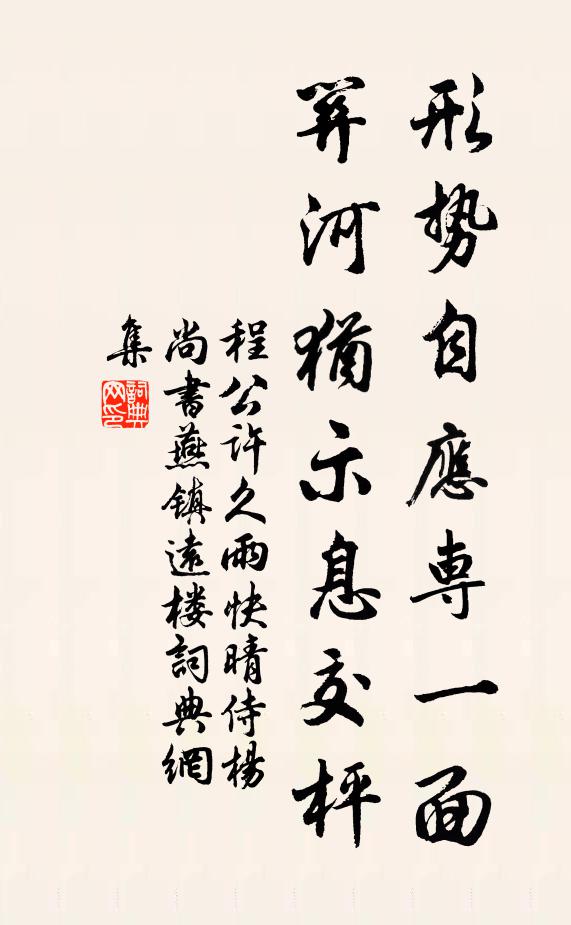 形勢自應専一面
關河猶示息交枰
程公許久雨快晴侍楊
尚書燕鎮遠楼詞典網
集
詞典网印